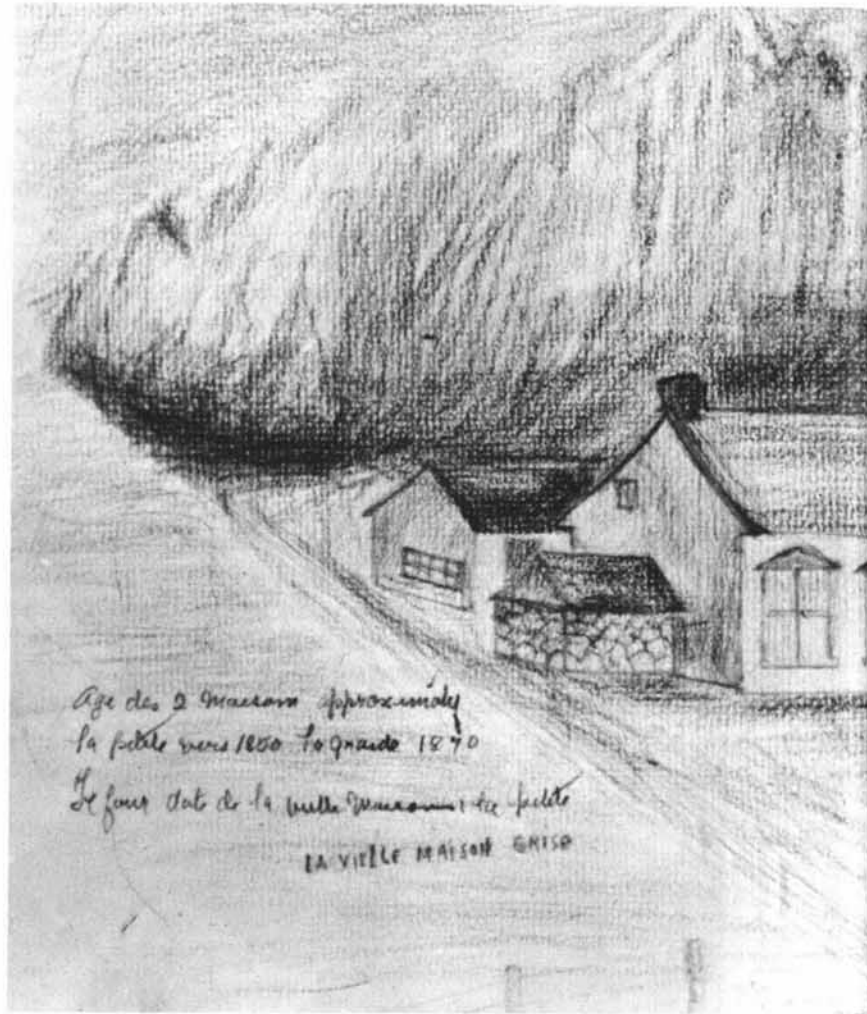 Age des 2 maisons approximatif
la petite vers 1850 la grande 1870
Le four date de la vielle maison la petite
LA VIELLE MAISON GRISE